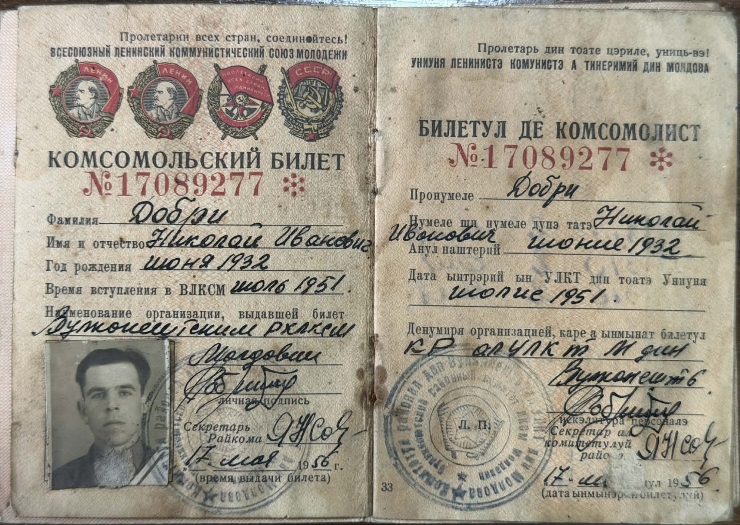 Пролетарии всех стран, соединяйтесь!
ВСЕСОЮЗНЫЙ ЛЕНИНСКИЙ КОММУНИСТИЧЕСКИЙ СОЮЗ МОЛОДЕЖИ
ЛЕНИН
ЛЕНИН
СССР
КОМСОМОЛЬСКИЙ БИЛЕТ
№17089277 *
Фамилия Добри
Имя и отчество Николай Иванович
Год рождения июня 1932
Время вступления в ВЛКСМ июль 1951.
Наименование организации, выдавшей билет
Вулконештским РКЛКСМ
Молдовии
личная подпись
Секретарь
Райкома
17 мая 1956 г.
(время выдачи билета)
Пролетарь дин тоате цэриле, униць-вэ!
УНИУНЯ ЛЕНИНИСТЭ КОМУНИСТЭ А ТИНЕРИМИЙ ДИН МОЛДОВА
БИЛЕТУЛ ДЕ КОМСОМОЛИСТ
№17089277 *
Пронумеле Добри
Нумеле ши нумеле дупэ татэ Николай
Иванович
Анул наштерий июние 1932
Дата ынтрэрий ын УЛКТ дин тоатэ Униуня
июлие 1951.
Денумиря организацией, каре а ынмынат билетул
КР ал УЛКТ М дин
Вулконешть
Л. П.
искэлитура персоналэ
Секретар ал
комитетулуй
район.
17 1956
(дата ынмынэрий билетулуй)
33